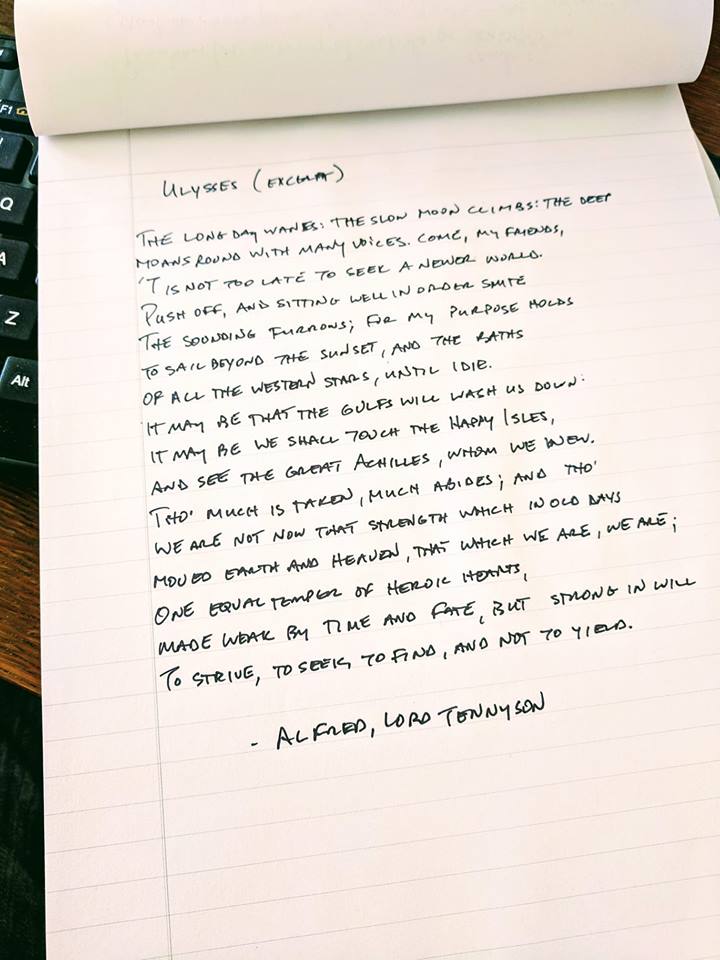 ULYSSES (EXCERPT)
THE LONG DAY WANES: THE SLOW MOON CLIMBS: THE DEEP
MOANS ROUND WITH MANY VOICES. COME, MY FRIENDS,
'T IS NOT TOO LATE TO SEEK A NEWER WORLD.
PUSH OFF, AND SITTING WELL IN ORDER SMITE
THE SOUNDING FURROWS; FOR MY PURPOSE HOLDS
TO SAIL BEYOND THE SUNSET, AND THE BATHS
OF ALL THE WESTERN STARS, UNTIL I DIE.
IT MAY BE THAT THE GULFS WILL WASH US DOWN:
IT MAY BE WE SHALL TOUCH THE HAPPY ISLES,
AND SEE THE GREAT ACHILLES, WHOM WE KNEW.
THO' MUCH IS TAKEN, MUCH ABIDES; AND THO'
WE ARE NOT NOW THAT STRENGTH WHICH IN OLD DAYS
MOVED EARTH AND HEAVEN, THAT WHICH WE ARE, WE ARE;
ONE EQUAL TEMPER OF HEROIC HEARTS,
MADE WEAK BY TIME AND FATE, BUT STRONG IN WILL
TO STRIVE, TO SEEK, TO FIND, AND NOT TO YIELD.
- ALFRED, LORD TENNYSON
F1
Q
A
Z
Alt